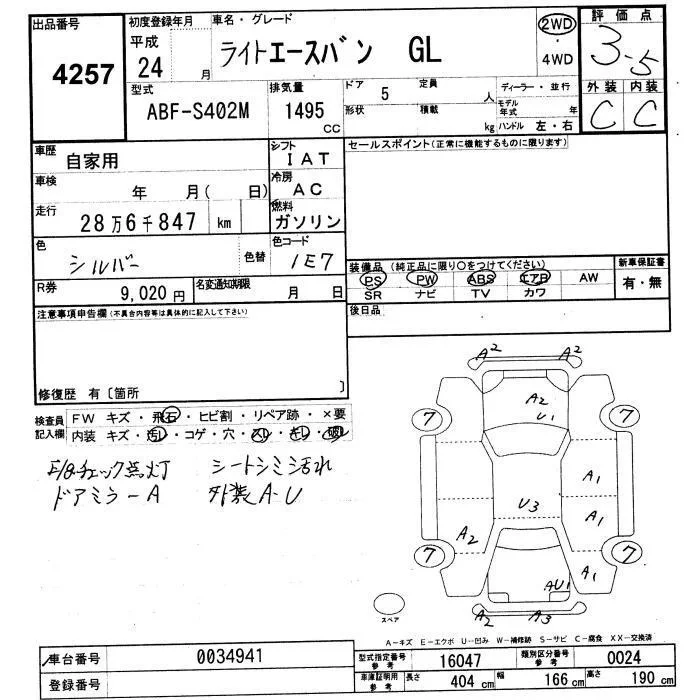 出品番号
4257
初度登録年月
平成
24 月
車名・グレード
ライトエースバン GL
2WD
・
4WD
評価点
3.5
外装 内装
C C
型式
ABF-S402M
排気量
1495
CC
ドア
5
定員
人
形状
積載
kg
ディーラー・並行
モデル年式
年
ハンドル 左・右
車歴
自家用
シフト
IAT
車検
年 月( 日)
冷房
AC
走行
28万6千847 km
燃料
ガソリン
色
シルバー
色替
色コード
1E7
R券
9,020円
名変通知期限
月 日
セールスポイント(正常に機能するものに限ります)
装備品(純正品に限り○をつけてください)
PS PW ABS エアB AW
SR ナビ TV カワ
新車保証書
有・無
後日品
注意事項申告欄(不具合内容等は具体的に記入して下さい)
修復歴 有〔箇所 〕
検査員記入欄
FW キズ・飛石・ヒビ割・リペア跡・×要
内装 キズ・汚レ・コゲ・穴・スレ・キレ・破レ
E/Gチェック点灯 シートシミ汚れ
ドアミラーA 外装A-U
A2 A2
A2
U1
7 7
A1
U3
A1
A2
7 7
A1
AU1
A2 A3
スペア
A-キズ E-エクボ U-凹み W-補修跡 S-サビ C-腐食 XX-交換済
車台番号
0034941
登録番号
型式指定番号
参考
16047
類別区分番号
参考
0024
車庫証明用
参考
長さ
404 cm
幅
166 cm
高さ
190 cm